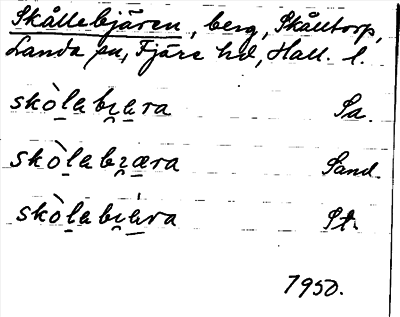 Skållebjären, berg, Skålltorp,
Landa sn, Fjäre hd, Hall. l.
skò̱labi̯æ̱ra Sa.
skò̱labi̯æ̱ra Sand.
skò̱labi̯æ̱̀ra St.
1950.